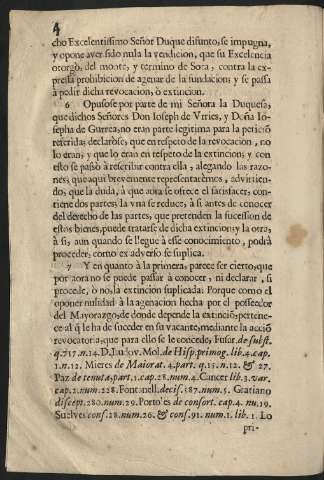 4
cho Excelentissimo Señor Duque difunto, se impugna,
y opone aver sido nula la vendicion, que su Excelencia
otorgò, del monte, y termino de Sora, contra la ex-
pressa prohibicion de agenar de la fundacion; y se passa
à pedir dicha revocacion, ò extincion.
6 Opusose por parte de mi Señora la Duquesa,
que dichos Señores Don Ioseph de Vrries, y Doña Io-
sepha de Gurrea, no eran parte legitima para la peticiõ
referida; declaròse, que en respeto de la revocacion, no
lo eran; y que lo eran en respeto de la extincion; y con
esto se passò à rescribir contra ella, alegando las razo-
nes, que aqui brevemente representarèmos, advirtien-
do, que la duda, à que aora se ofrece el satisfacer, con-
tiene dos partes; la vna se reduce, à si antes de conocer
del derecho de las partes, que pretenden la sucession de
estos bienes, puede tratarse de dicha extincion; y la otra,
à si, aun quando se llegue à esse conocimiento, podrà
proceder, como ex adverso se suplica.
7 Y en quanto à la primera, parece ser cierto, que
por aora no se puede passar à conocer, ni declarar, si
procede, ò no, la extincion suplicada: Porque como el
oponer nulidad à la agenacion hecha por el possedor
del Mayorazgo, de donde depende la extinciõ, pertene-
ce al q̃ le ha de suceder en su vacante, mediante la acciõ
revocatoria, que para ello se le concede, Fusar. de subst.
q. 717. n. 14. D. Ludov. Mol. de Hisp. primog. lib. 4. cap.
1. n. 12. Mieres de Maiorat. 4. part. q. 15. n. 12. & 27.
Paz de tenuta, part. 1. cap. 28. num. 4. Cancer lib. 3. var.
cap. 2. num. 228. Fontanell. decis. 387. num. 5. Gratiano
discept. 280. num. 29. Portolès de consort. cap. 4. nu. 19.
Suelves cons. 28. num. 26. & cons. 91. num. 1. lib. 1. Lo
pri-